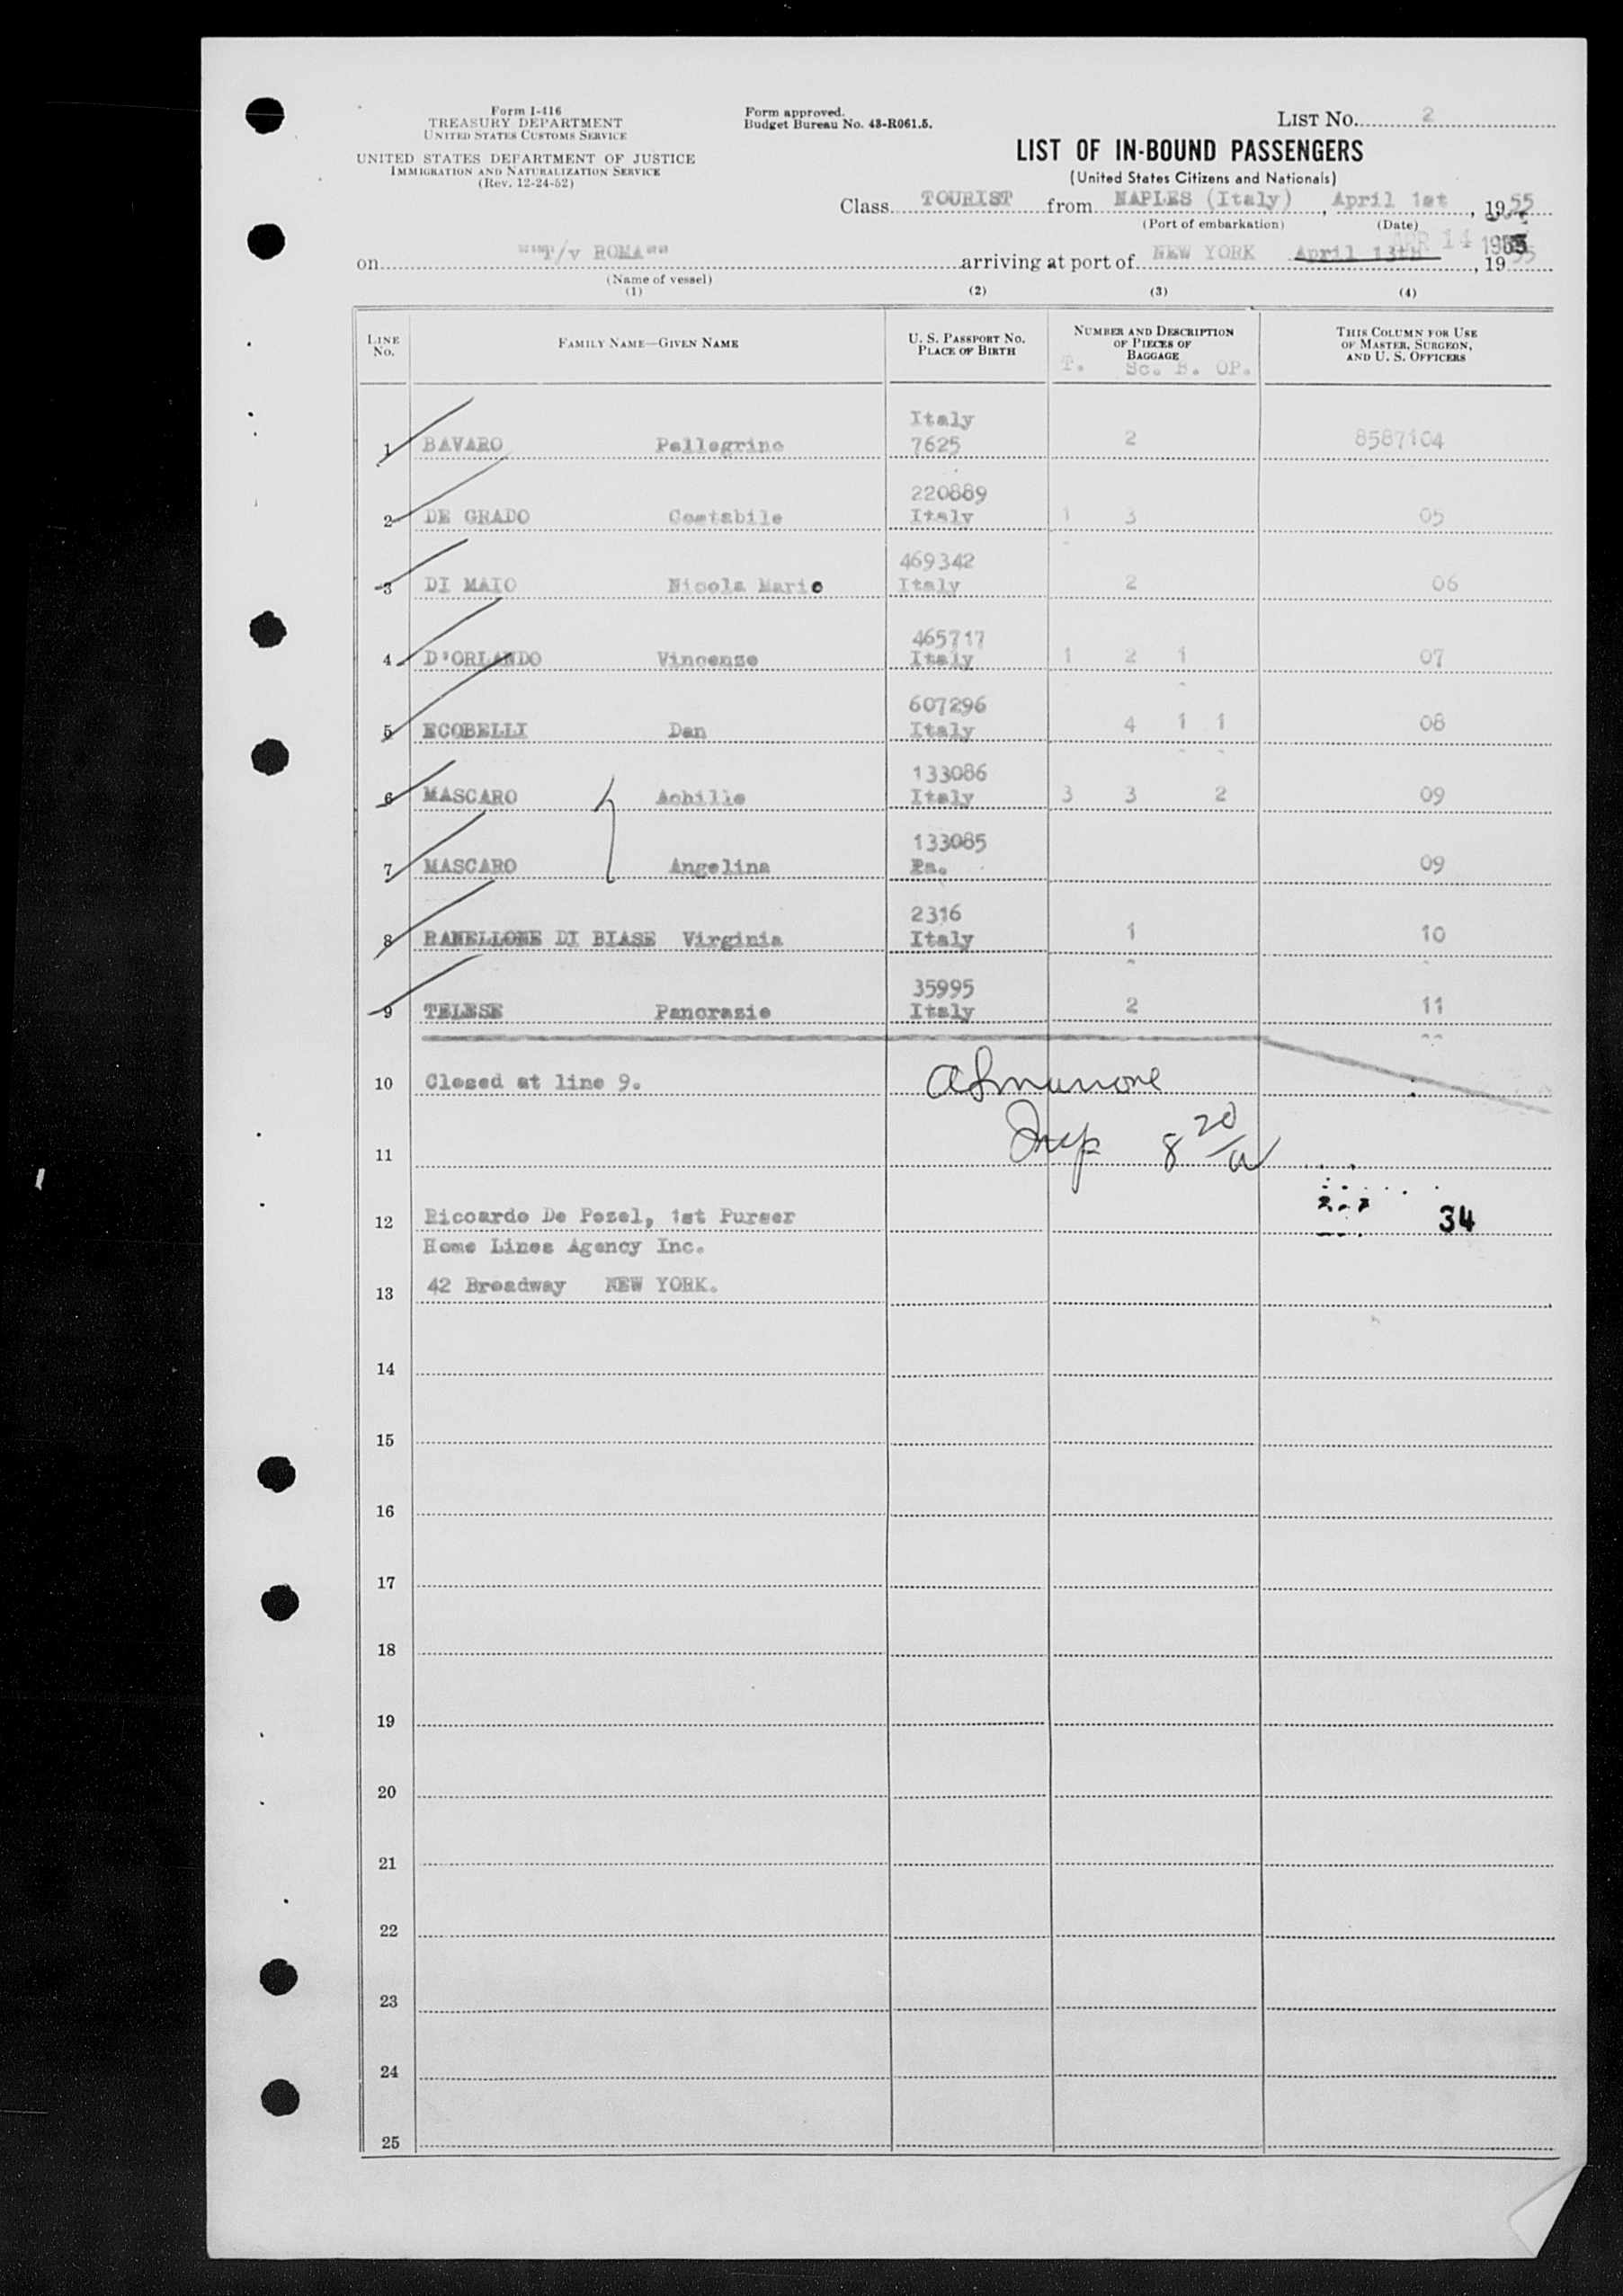 Form I-416
TREASURY DEPARTMENT
UNITED STATES CUSTOMS SERVICE
UNITED STATES DEPARTMENT OF JUSTICE
IMMIGRATION AND NATURALIZATION SERVICE
(Rev. 12-24-52)
Form approved.
Budget Bureau No. 43-R061.5.
LIST No. 2
LIST OF IN-BOUND PASSENGERS
(United States Citizens and Nationals)
Class TOURIST from NAPLES (Italy), April 1st, 1955
(Port of embarkation) (Date)
APR 14 1955
on ""T/v ROMA"" arriving at port of NEW YORK April 13th, 1955
(Name of vessel)
(1) (2) (3) (4)
LINE No. FAMILY NAME—GIVEN NAME U. S. PASSPORT No. PLACE OF BIRTH NUMBER AND DESCRIPTION OF PIECES OF BAGGAGE THIS COLUMN FOR USE OF MASTER, SURGEON, AND U. S. OFFICERS
T. Sc. B. OP.
Italy
1 BAVARO Pellegrino 7625 2 8587104
220889
2 DE GRADO Costabile Italy 1 3 05
469342
3 DI MAIO Nicola Mario Italy 2 06
465717
4 D'ORLANDO Vincenzo Italy 1 2 1 07
607296
5 ECOBELLI Dan Italy 4 1 1 08
133086
6 MASCARO Achille Italy 3 3 2 09
133085
7 MASCARO Angelina Pa. 09
2316
8 RANELLONE DI BIASE Virginia Italy 1 10
35995
9 TELESE Pancrazio Italy 2 11
10 Closed at line 9.
11 Insp 8 20/a
12 Riccardo De Pozel, 1st Purser 34
Home Lines Agency Inc.
13 42 Broadway NEW YORK.
14
15
16
17
18
19
20
21
22
23
24
25